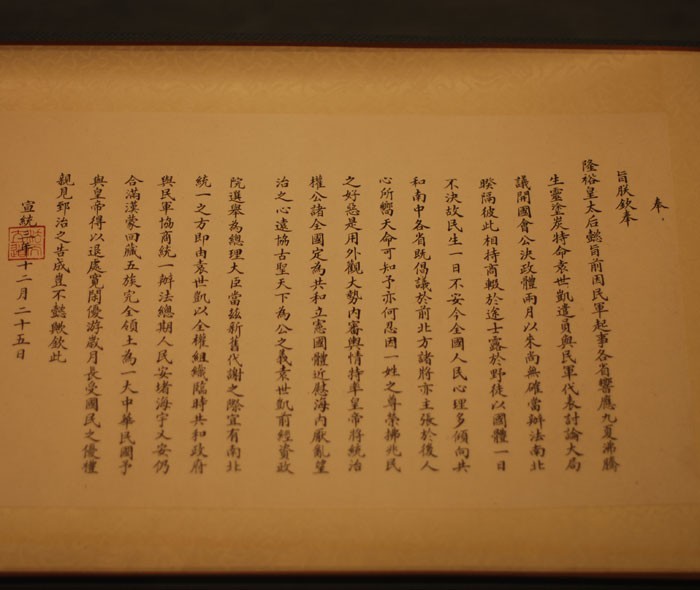 奉
旨朕欽奉
隆裕皇太后懿旨前因民軍起事各省響應九夏沸騰
生靈塗炭特命袁世凱遣員與民軍代表討論大局
議開國會公決政體兩月以來尚無確當辦法南北
暌隔彼此相持商輟於途士露於野徒以國體一日
不決故民生一日不安今全國人民心理多傾向共
和南中各省既倡議於前北方諸將亦主張於後人
心所嚮天命可知予亦何忍因一姓之尊榮拂兆民
之好惡是用外觀大勢內審輿情特率皇帝將統治
權公諸全國定為共和立憲國體近慰海內厭亂望
治之心遠協古聖天下為公之義袁世凱前經資政
院選舉為總理大臣當茲新舊代謝之際宜有南北
統一之方即由袁世凱以全權組織臨時共和政府
與民軍協商統一辦法總期人民安堵海宇乂安仍
合滿漢蒙回藏五族完全領土為一大中華民國予
與皇帝得以退處寬閑優游歲月長受國民之優禮
親見郅治之告成豈不懿歟欽此
宣統三年十二月二十五日